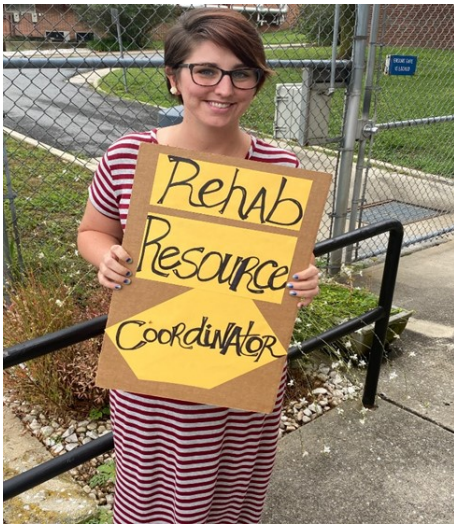 Rehab
Resource
Coordinator